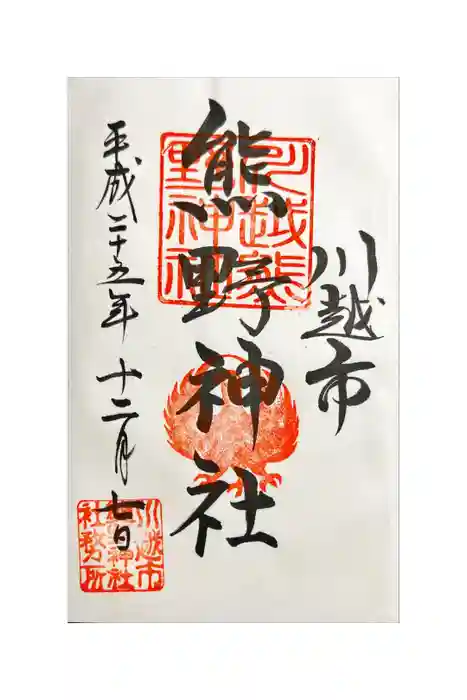 川越市
熊野神社
平成二十五年 十二月 七日
川越熊
野神社
川越市
熊野神社
社務所